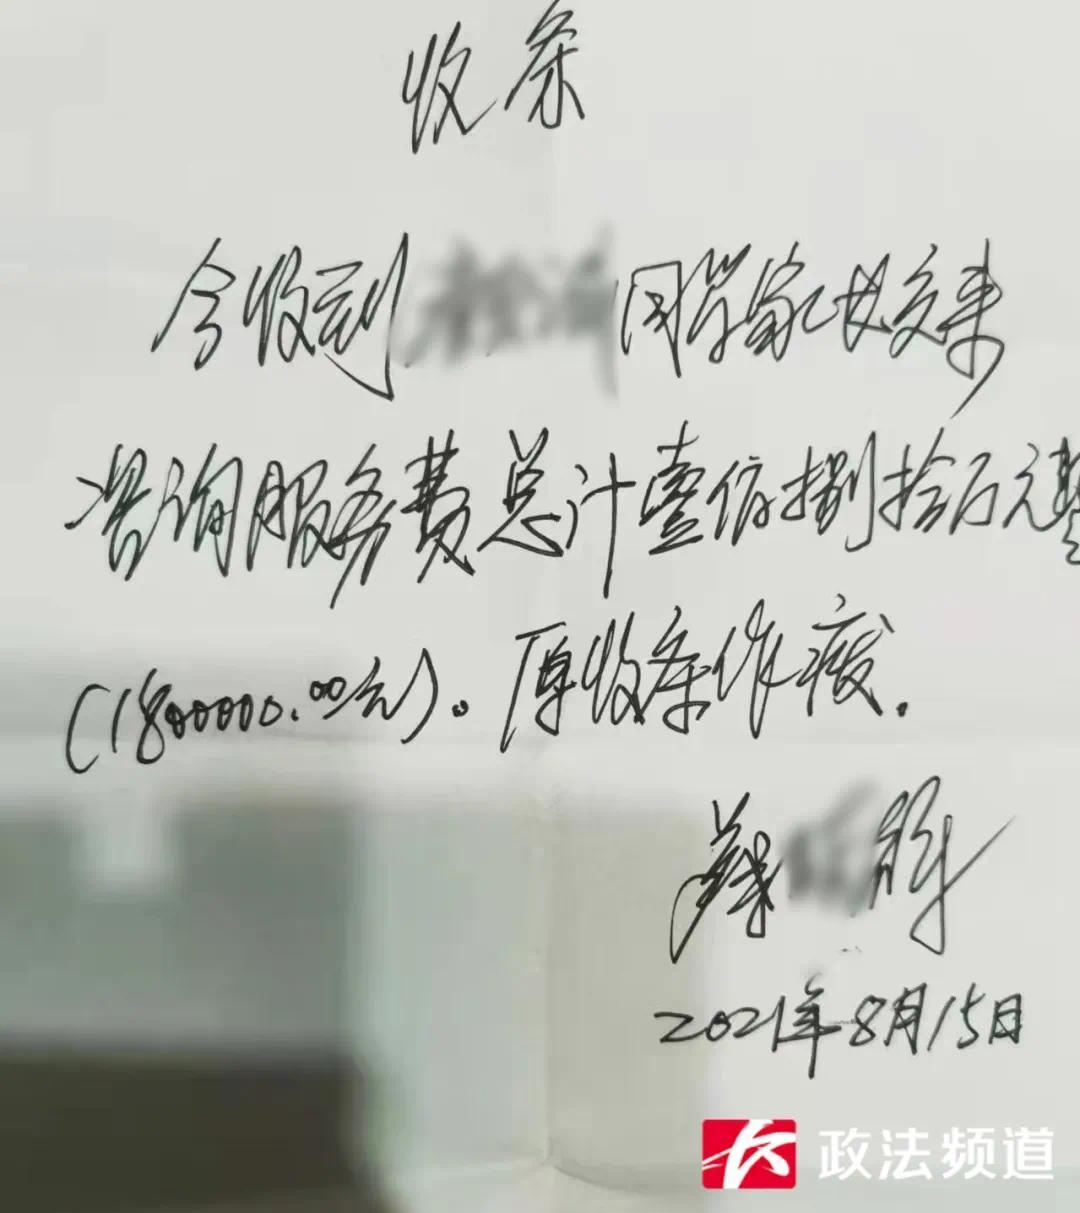 收条
今收到 同学家长交来
咨询服务费总计壹佰捌拾万元整
(1800000.00元)。原收条作废.
2021年8月15日
政法频道